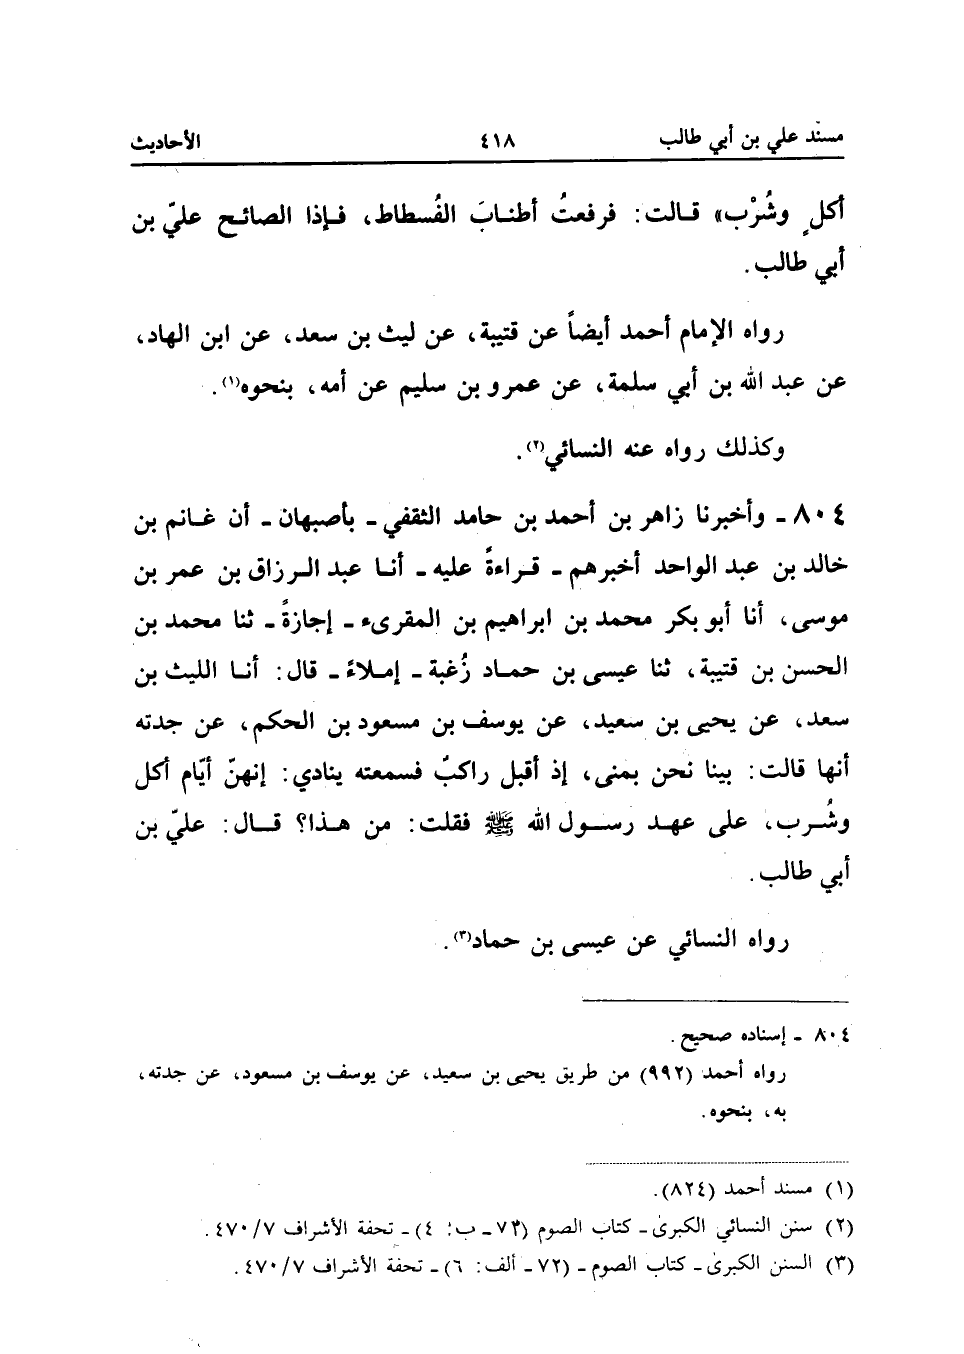 مسند علي بن أبي طالب ٤١٨ الأحاديث
أكلٍ وشُرْب» قالت: فرفعتُ أطنابَ الفُسطاط، فإذا الصائح عليّ بن
أبي طالب.
رواه الإمام أحمد أيضاً عن قتيبة، عن ليث بن سعد، عن ابن الهاد،
عن عبد الله بن أبي سلمة، عن عمرو بن سليم عن أمه، بنحوه(١).
وكذلك رواه عنه النسائي(٢).
٨٠٤ ـ وأخبرنا زاهر بن أحمد بن حامد الثقفي ـ بأصبهان ـ أن غانم بن
خالد بن عبد الواحد أخبرهم ـ قراءةً عليه ـ أنا عبد الرزاق بن عمر بن
موسى، أنا أبو بكر محمد بن ابراهيم بن المقرىء ـ إجازةً ـ ثنا محمد بن
الحسن بن قتيبة، ثنا عيسى بن حماد زُغبة ـ إملاءً ـ قال: أنا الليث بن
سعد، عن يحيى بن سعيد، عن يوسف بن مسعود بن الحكم، عن جدته
أنها قالت: بينا نحن بمنى، إذ أقبل راكبٌ فسمعته ينادي: إنهنّ أيّام أكل
وشُرب، على عهد رسول الله ﷺ فقلت: من هذا؟ قال: عليّ بن
أبي طالب.
رواه النسائي عن عيسى بن حماد(٣).
٨٠٤ ـ إسناده صحيح.
رواه أحمد (٩٩٢) من طريق يحيى بن سعيد، عن يوسف بن مسعود، عن جدته،
به، بنحوه.
(١) مسند أحمد (٨٢٤).
(٢) سنن النسائي الكبرىٰ ـ كتاب الصوم (٧٣ ـ ب: ٤) ـ تحفة الأشراف ٤٧٠/٧.
(٣) السنن الكبرىٰ ـ كتاب الصوم ـ (٧٢ ـ ألف: ٦) ـ تحفة الأشراف ٤٧٠/٧.